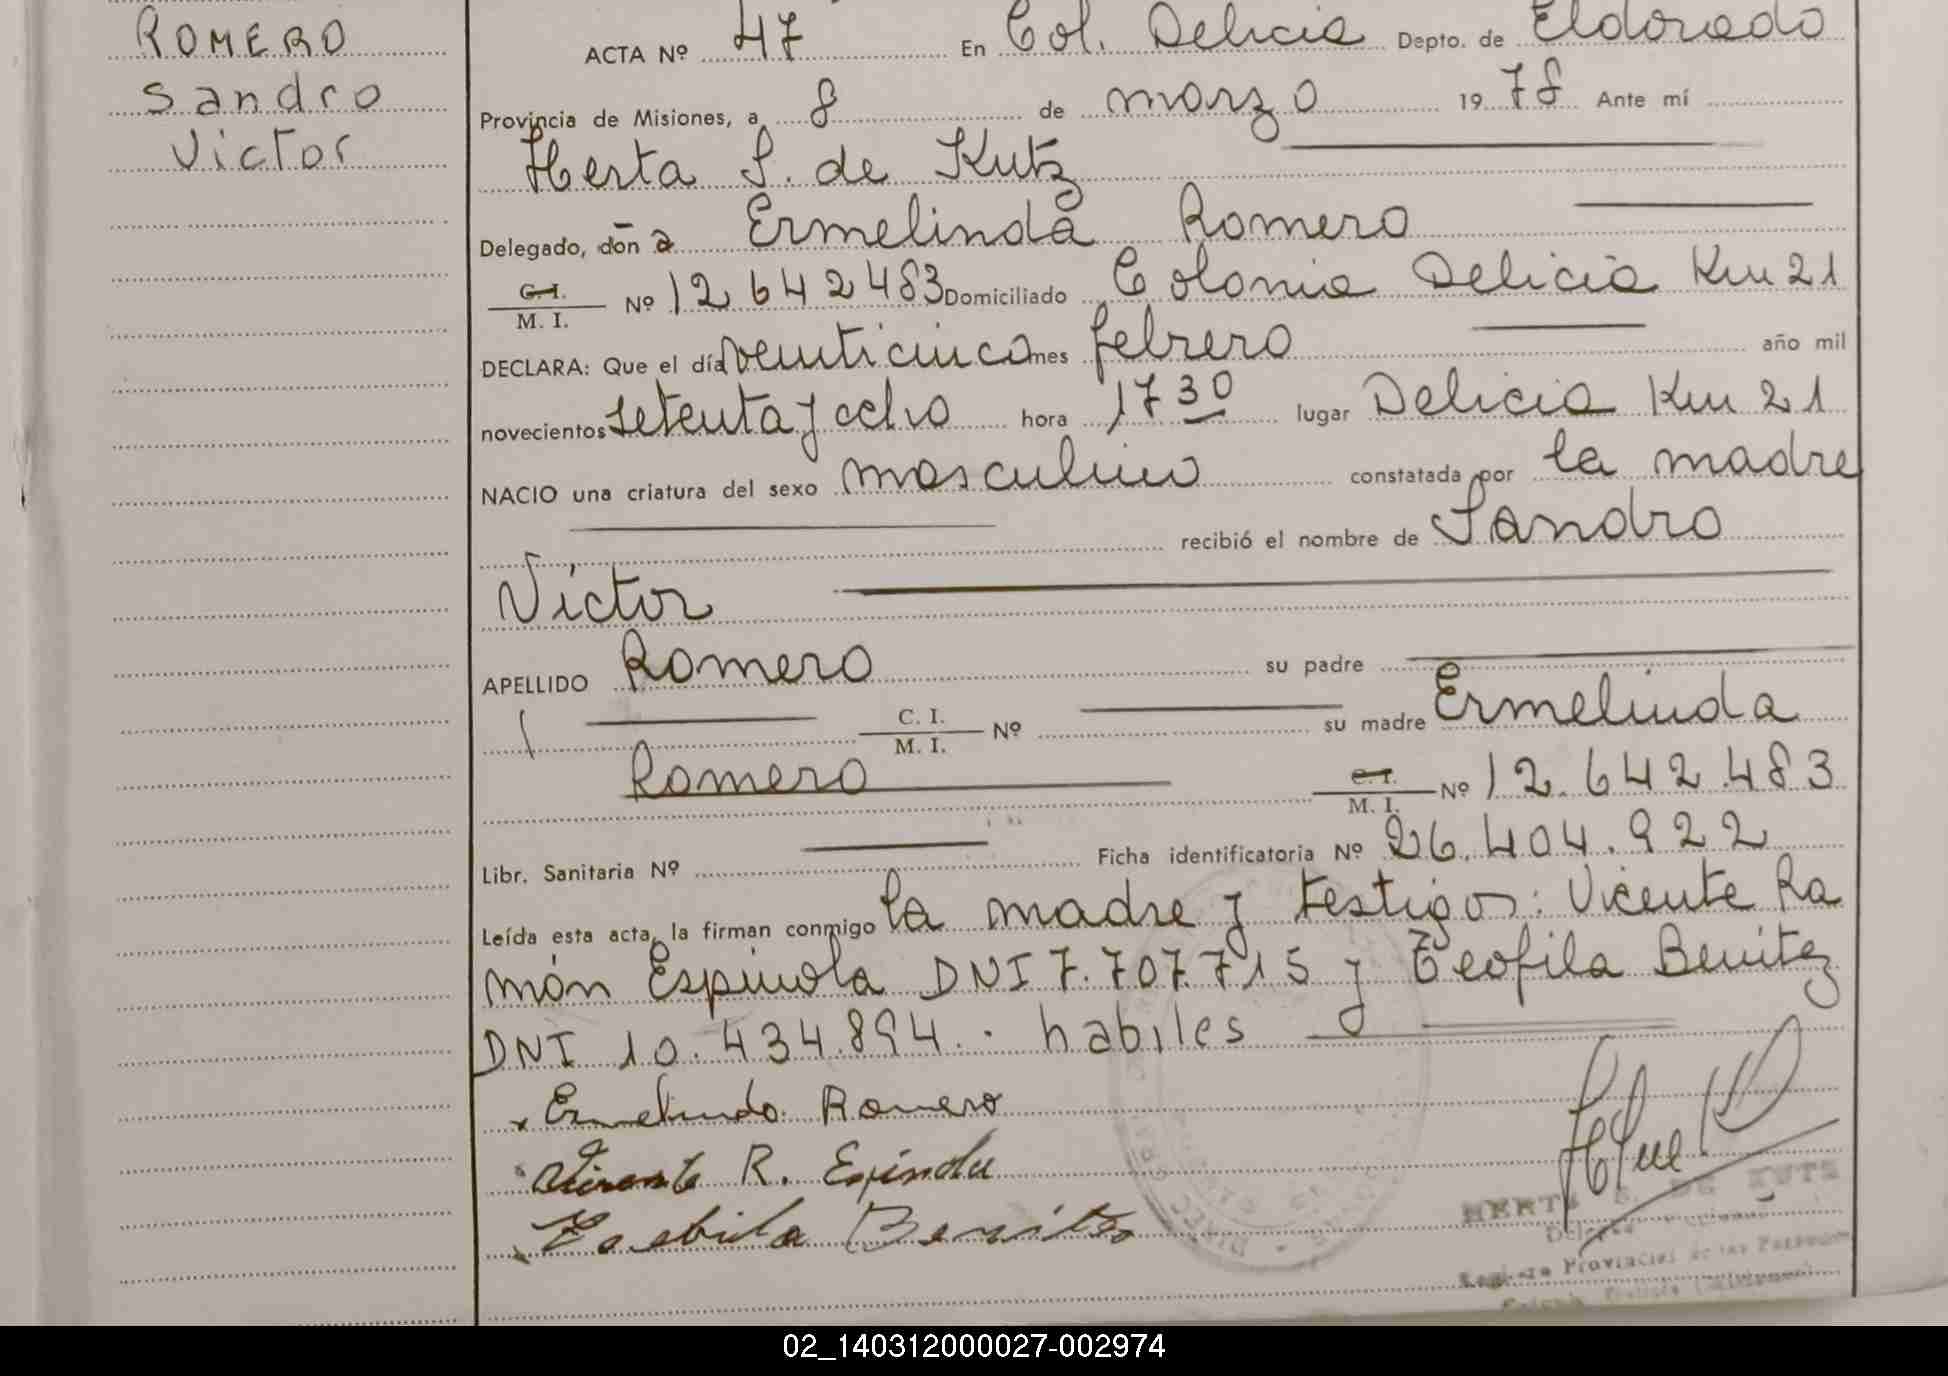 ROMERO
Sandro
Victor
ACTA Nº 47 En Col. Delicia Depto. de Eldorado
Provincia de Misiones, a 8 de marzo 1978 Ante mí
Herta S. de Kutz
Delegado, don a Ermelinda Romero
C. I. M. I. Nº 12642483 Domiciliado Colonia Delicia Km 21
DECLARA: Que el día veinticinco mes febrero año mil
novecientos setenta y ocho hora 1730 lugar Delicia Km 21
NACIO una criatura del sexo masculino constatada por la madre
recibió el nombre de Sandro
Victor
APELLIDO Romero su padre
C. I. M. I. Nº su madre Ermelinda
Romero C. I. M. I. Nº 12.642.483
Libr. Sanitaria Nº Ficha identificatoria Nº 26.404.922
Leída esta acta, la firman conmigo la madre y testigos: Vicente Ra
món Espinola DNI 7.707.715 y Teofila Benitez
DNI 10.434.894. habiles
Ermelinda Romero
Vicente R. Espindola
Benitez
HERTA S. DE KUTZ
Delegada
Registro Provincial de las Personas
02_140312000027-002974